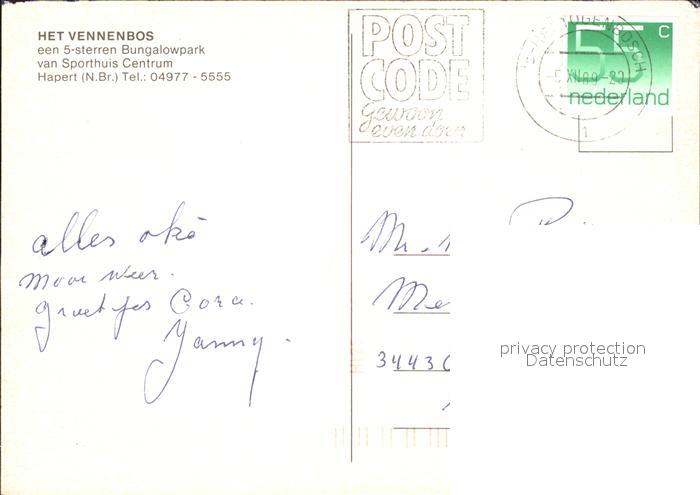 HET VENNENBOS
een 5-sterren Bungalowpark
van Sporthuis Centrum
Hapert (N.Br.) Tel.: 04977 - 5555
POST
CODE
Gewoon
even doen
55 c
nederland
alles oké
mooi weer.
groetjes Cora.
Janny.
3443
privacy protection
Datenschutz